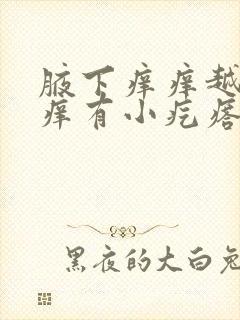 腋下痒痒越
痒有小疙瘩
黑夜的大白兔